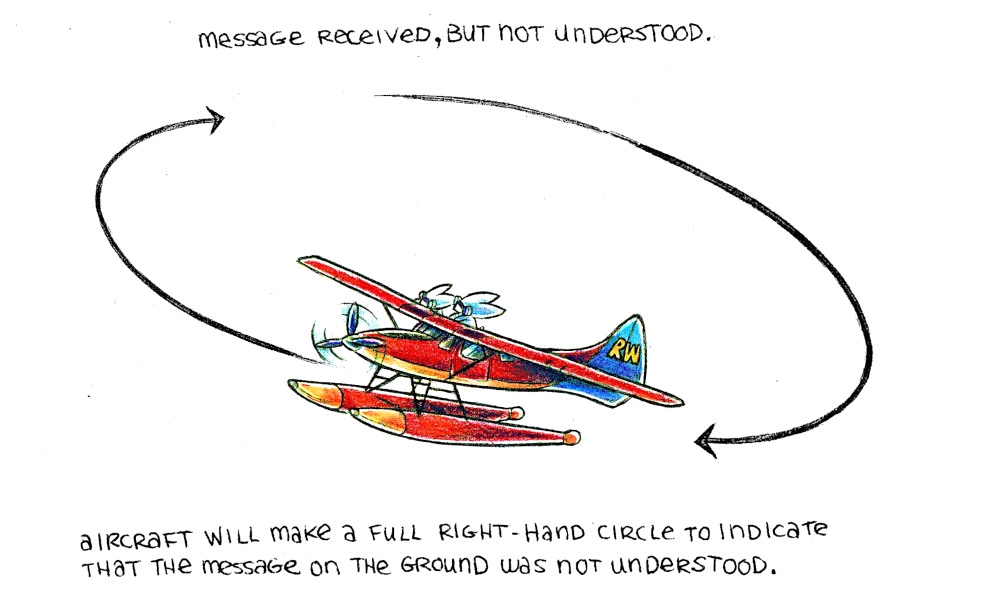 message Received, BUT not UnDeRSTOOD.
RW
aIRCRaFT WILL make a FULL RIGHT-Hand CIRCLe TO IndICaTe
THaT THe messaGe on THe GROUnD was noT UnDeRSTOOD.